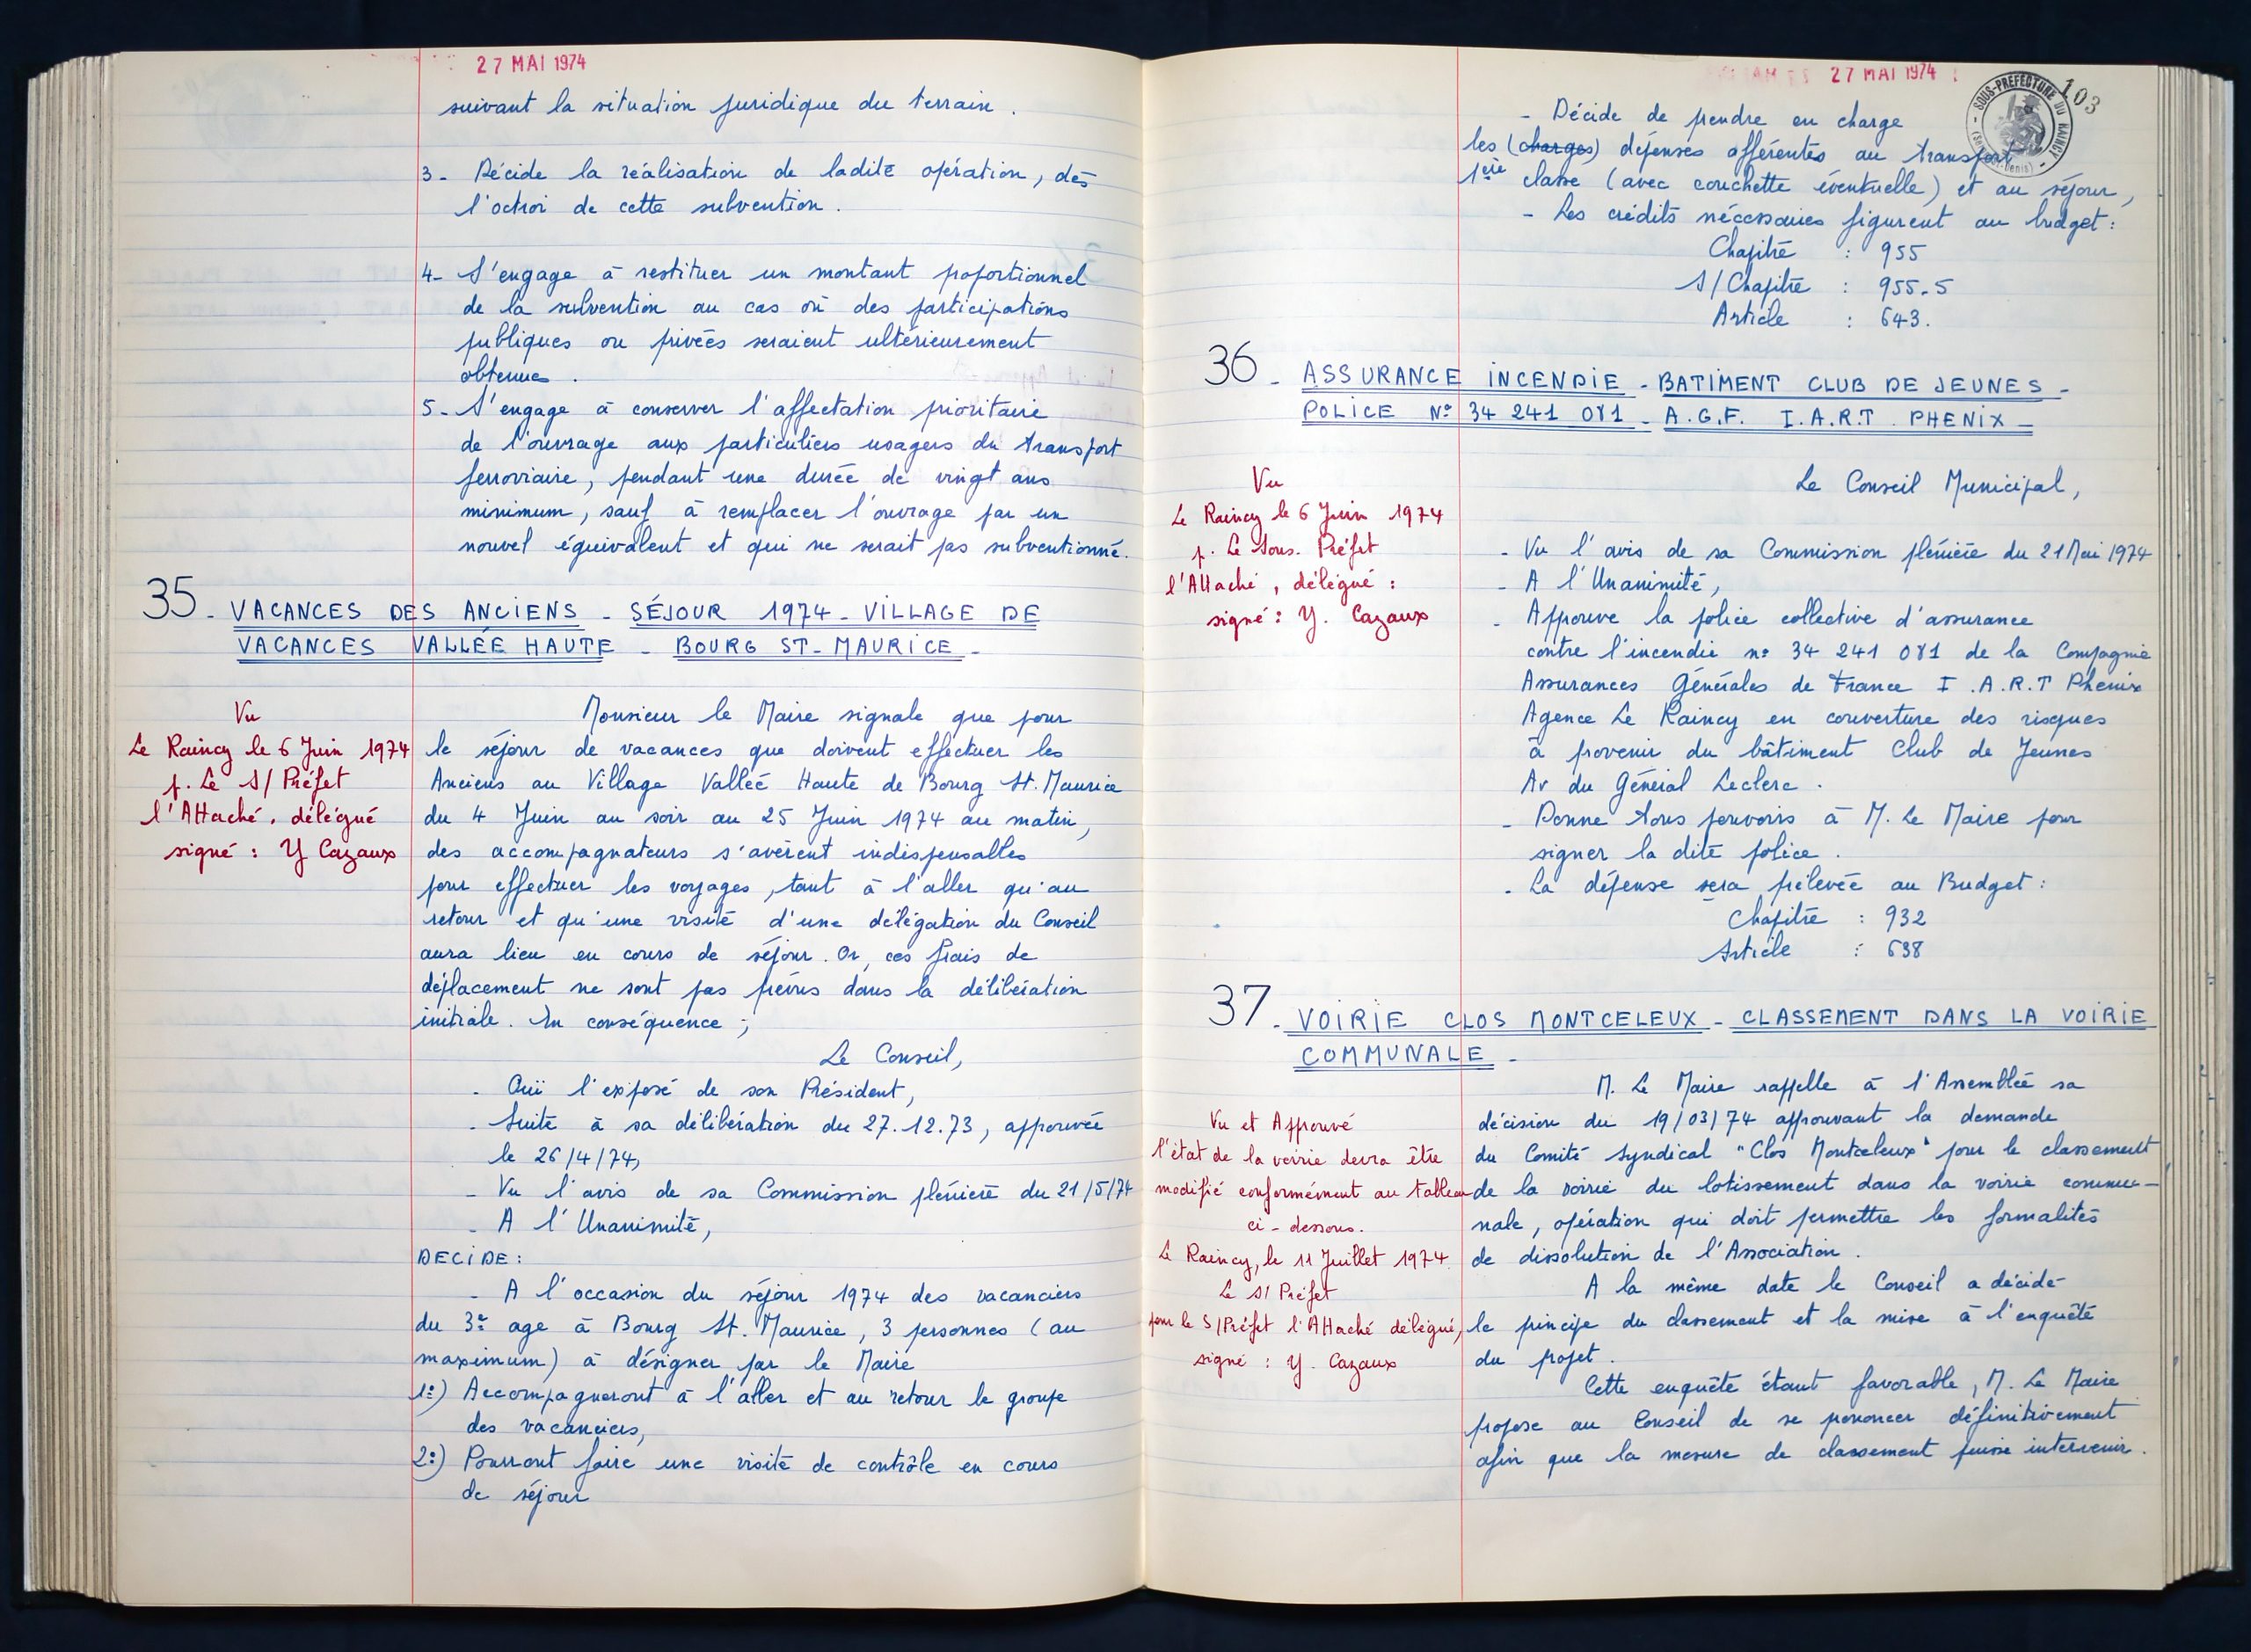 27 MAI 1974
suivant la situation juridique du terrain.
3- Décide la réalisation de ladite opération, dès
l'octroi de cette subvention.
4- S'engage à restituer un montant proportionnel
de la subvention au cas où des participations
publiques ou privées seraient ultérieurement
obtenues.
5- S'engage à conserver l'affectation prioritaire
de l'ouvrage aux particuliers usagers du transport
ferroviaire, pendant une durée de vingt ans
minimum, sauf à remplacer l'ouvrage par un
nouvel équivalent et qui ne serait pas subventionné.
35- VACANCES DES ANCIENS - SÉJOUR 1974 - VILLAGE DE
VACANCES VALLÉE HAUTE - BOURG ST-MAURICE -
Vu
Le Raincy le 6 Juin 1974
p. Le S/ Préfet
l'Attaché, délégué
signé : Y Cazaux
Monsieur le Maire signale que pour
le séjour de vacances que doivent effectuer les
Anciens au Village Vallée Haute de Bourg St. Maurice
du 4 Juin au soir au 25 Juin 1974 au matin,
des accompagnateurs s'avèrent indispensables
pour effectuer les voyages, tant à l'aller qu'au
retour et qu'une visite d'une délégation du Conseil
aura lieu en cours de séjour. Or, ces frais de
déplacement ne sont pas prévus dans la délibération
initiale. En conséquence ;
Le Conseil,
- Ouï l'exposé de son Président,
- Suite à sa délibération du 27.12.73, approuvée
le 26/4/74,
- Vu l'avis de sa Commission plénière du 21/5/74
- A l'Unanimité,
DECIDE :
- A l'occasion du séjour 1974 des vacanciers
du 3e age à Bourg St. Maurice, 3 personnes (au
maximum) à désigner par le Maire
1°) Accompagneront à l'aller et au retour le groupe
des vacanciers,
2°) Pourront faire une visite de contrôle en cours
de séjour
27 MAI 1974
103
SOUS-PREFECTURE DU RAINCY
- Décide de prendre en charge
les (charges) dépenses afférentes au transport
1ère classe (avec couchette éventuelle) et au séjour,
- Les crédits nécessaires figurent au budget :
Chapitre : 955
S/Chapitre : 955.5
Article : 643.
36- ASSURANCE INCENDIE - BATIMENT CLUB DE JEUNES -
POLICE N° 34 241 081 - A.G.F. I.A.R.T. PHENIX -
Vu
Le Raincy le 6 Juin 1974
p. Le Sous. Préfet
l'Attaché, délégué :
signé : Y. Cazaux
Le Conseil Municipal,
- Vu l'avis de sa Commission plénière du 21 Mai 1974
- A l'Unanimité,
- Approuve la police collective d'assurance
contre l'incendie n° 34 241 081 de la Compagnie
Assurances Générales de France I.A.R.T Phenix
Agence Le Raincy en couverture des risques
à provenir du bâtiment Club de Jeunes
Av du Général Leclerc.
- Donne tous pouvoirs à M. Le Maire pour
signer la dite police.
- La dépense sera prélevée au Budget :
Chapitre : 932
Article : 638
37- VOIRIE CLOS MONTCELEUX - CLASSEMENT DANS LA VOIRIE
COMMUNALE -
Vu et Approuvé
l'état de la voirie devra être
modifié conformément au tableau
ci-dessous.
Le Raincy, le 11 Juillet 1974
Le S/ Préfet
pour le S/Préfet l'Attaché délégué,
signé : Y. Cazaux
M. Le Maire rappelle à l'Assemblée sa
décision du 19/03/74 approuvant la demande
du Comité Syndical "Clos Montceleux" pour le classement
de la voirie du lotissement dans la voirie commu-
nale, opération qui doit permettre les formalités
de dissolution de l'Association.
A la même date le Conseil a décidé
le principe du classement et la mise à l'enquête
du projet.
Cette enquête étant favorable, M. Le Maire
propose au Conseil de se prononcer définitivement
afin que la mesure de classement puisse intervenir.